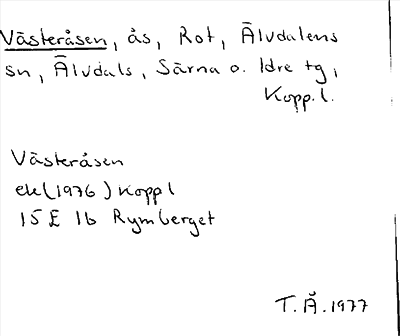 Västeråsen, ås, Rot, Älvdalens
sn, Älvdals, Särna o. Idre tg,
Kopp.l.
Västeråsen
ek (1976) Kopp l
15 E 1b Rymberget
T.Å. 1977